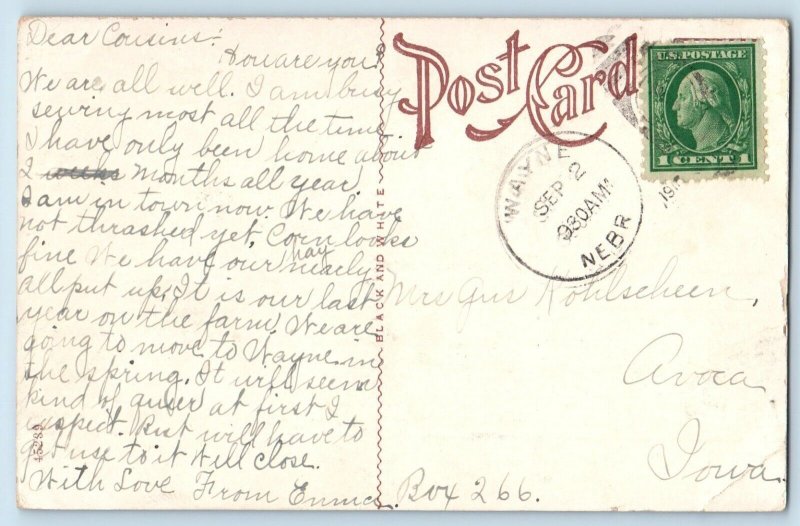 Dear Cousins:
How are you?
We are all well. I am busy
sewing most all the time
I have only been home about
2 ~~weeks~~ months all year
I am in town now. We have
not thrashed yet, Corn looks
fine We have our hay nearly
all put up, It is our last
year on the farm. We are
going to move to Wayne in
the spring. It will seem
kind of at first I
expect. But will have to
get use to it Will close.
With Love From Emma.
Box 266.
45289
BLACK AND WHITE
Post Card
U.S. POSTAGE
1 CENT 1
WAYNE
SEP 2
930AM
NEBR
191
Mrs Gus Kohlscheen,
Avoca
Iowa.